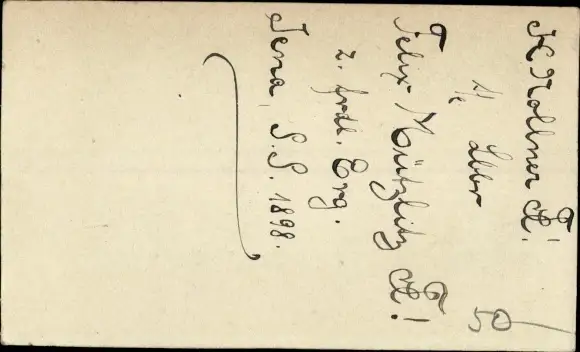 K Kollner
s/l Lbbr
Felix Mützlitz
z. frdl. Erg.
Jena, S.S. 1898.
50